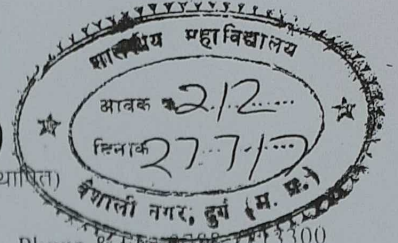 शासकीय महाविद्यालय
आवक 212
दिनांक 27.7.17
वैशाली नगर, दुर्ग (म. प्र.)
3300